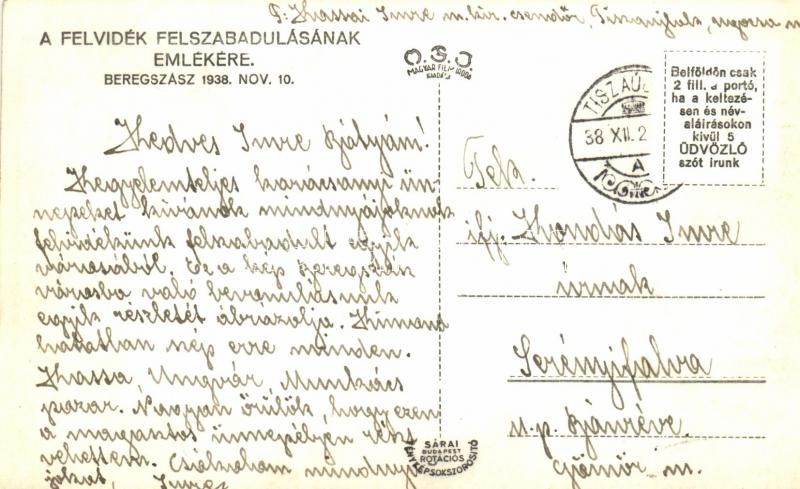 F: Kassai Imre m. kir. csendőr, Tiszaujlak, ugocsa m
A FELVIDÉK FELSZABADULÁSÁNAK
EMLÉKÉRE.
BEREGSZÁSZ 1938. NOV. 10.
MAGYAR FILM IRODA
KIADÁS
TISZAÚ
38 XII. 2
A
Belföldön csak
2 fill. a portó,
ha a keltezé-
sen és név-
aláirásokon
kivül 5
ÜDVÖZLŐ
szót irunk
Kedves Imre Bátyám!
Kegyelemteljes karácsonyi ün-
nepeket kívánok mindnyájoknak
felvidékünk felszabadult egyik
városából. Ez a kép Beregszász
városba való bevonulásunk
egyik részletét ábrázolja. Kimond
hatatlan szép erre minden.
Kassa, Ungvár, Munkács
pazar. Nagyon örülök, hogy ezen
a magasztos ünnepélyen részt
vehettem. Csókolom mindnyá
jokat, Imre
Tek.
ifj. Kondás Imre
úrnak
Serényifalva
u. p. Bánréve.
Gömör m.
SÁRAI
BUDAPEST
ROTÁCIÓS
FÉNYKÉPSOKSZOROSITÓ